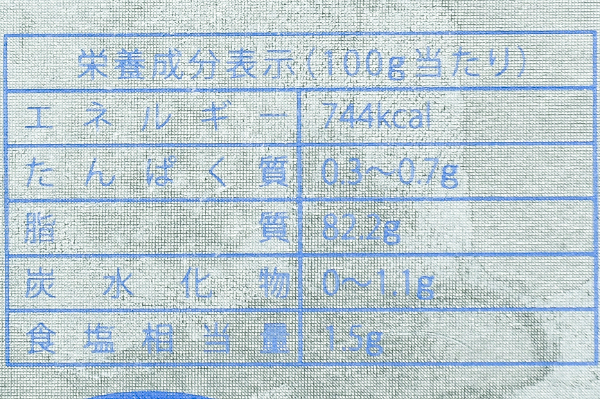 栄養成分表示(100g当たり)
エネルギー 744kcal
たんぱく質 0.3〜0.7g
脂質 82.2g
炭水化物 0〜1.1g
食塩相当量 1.5g